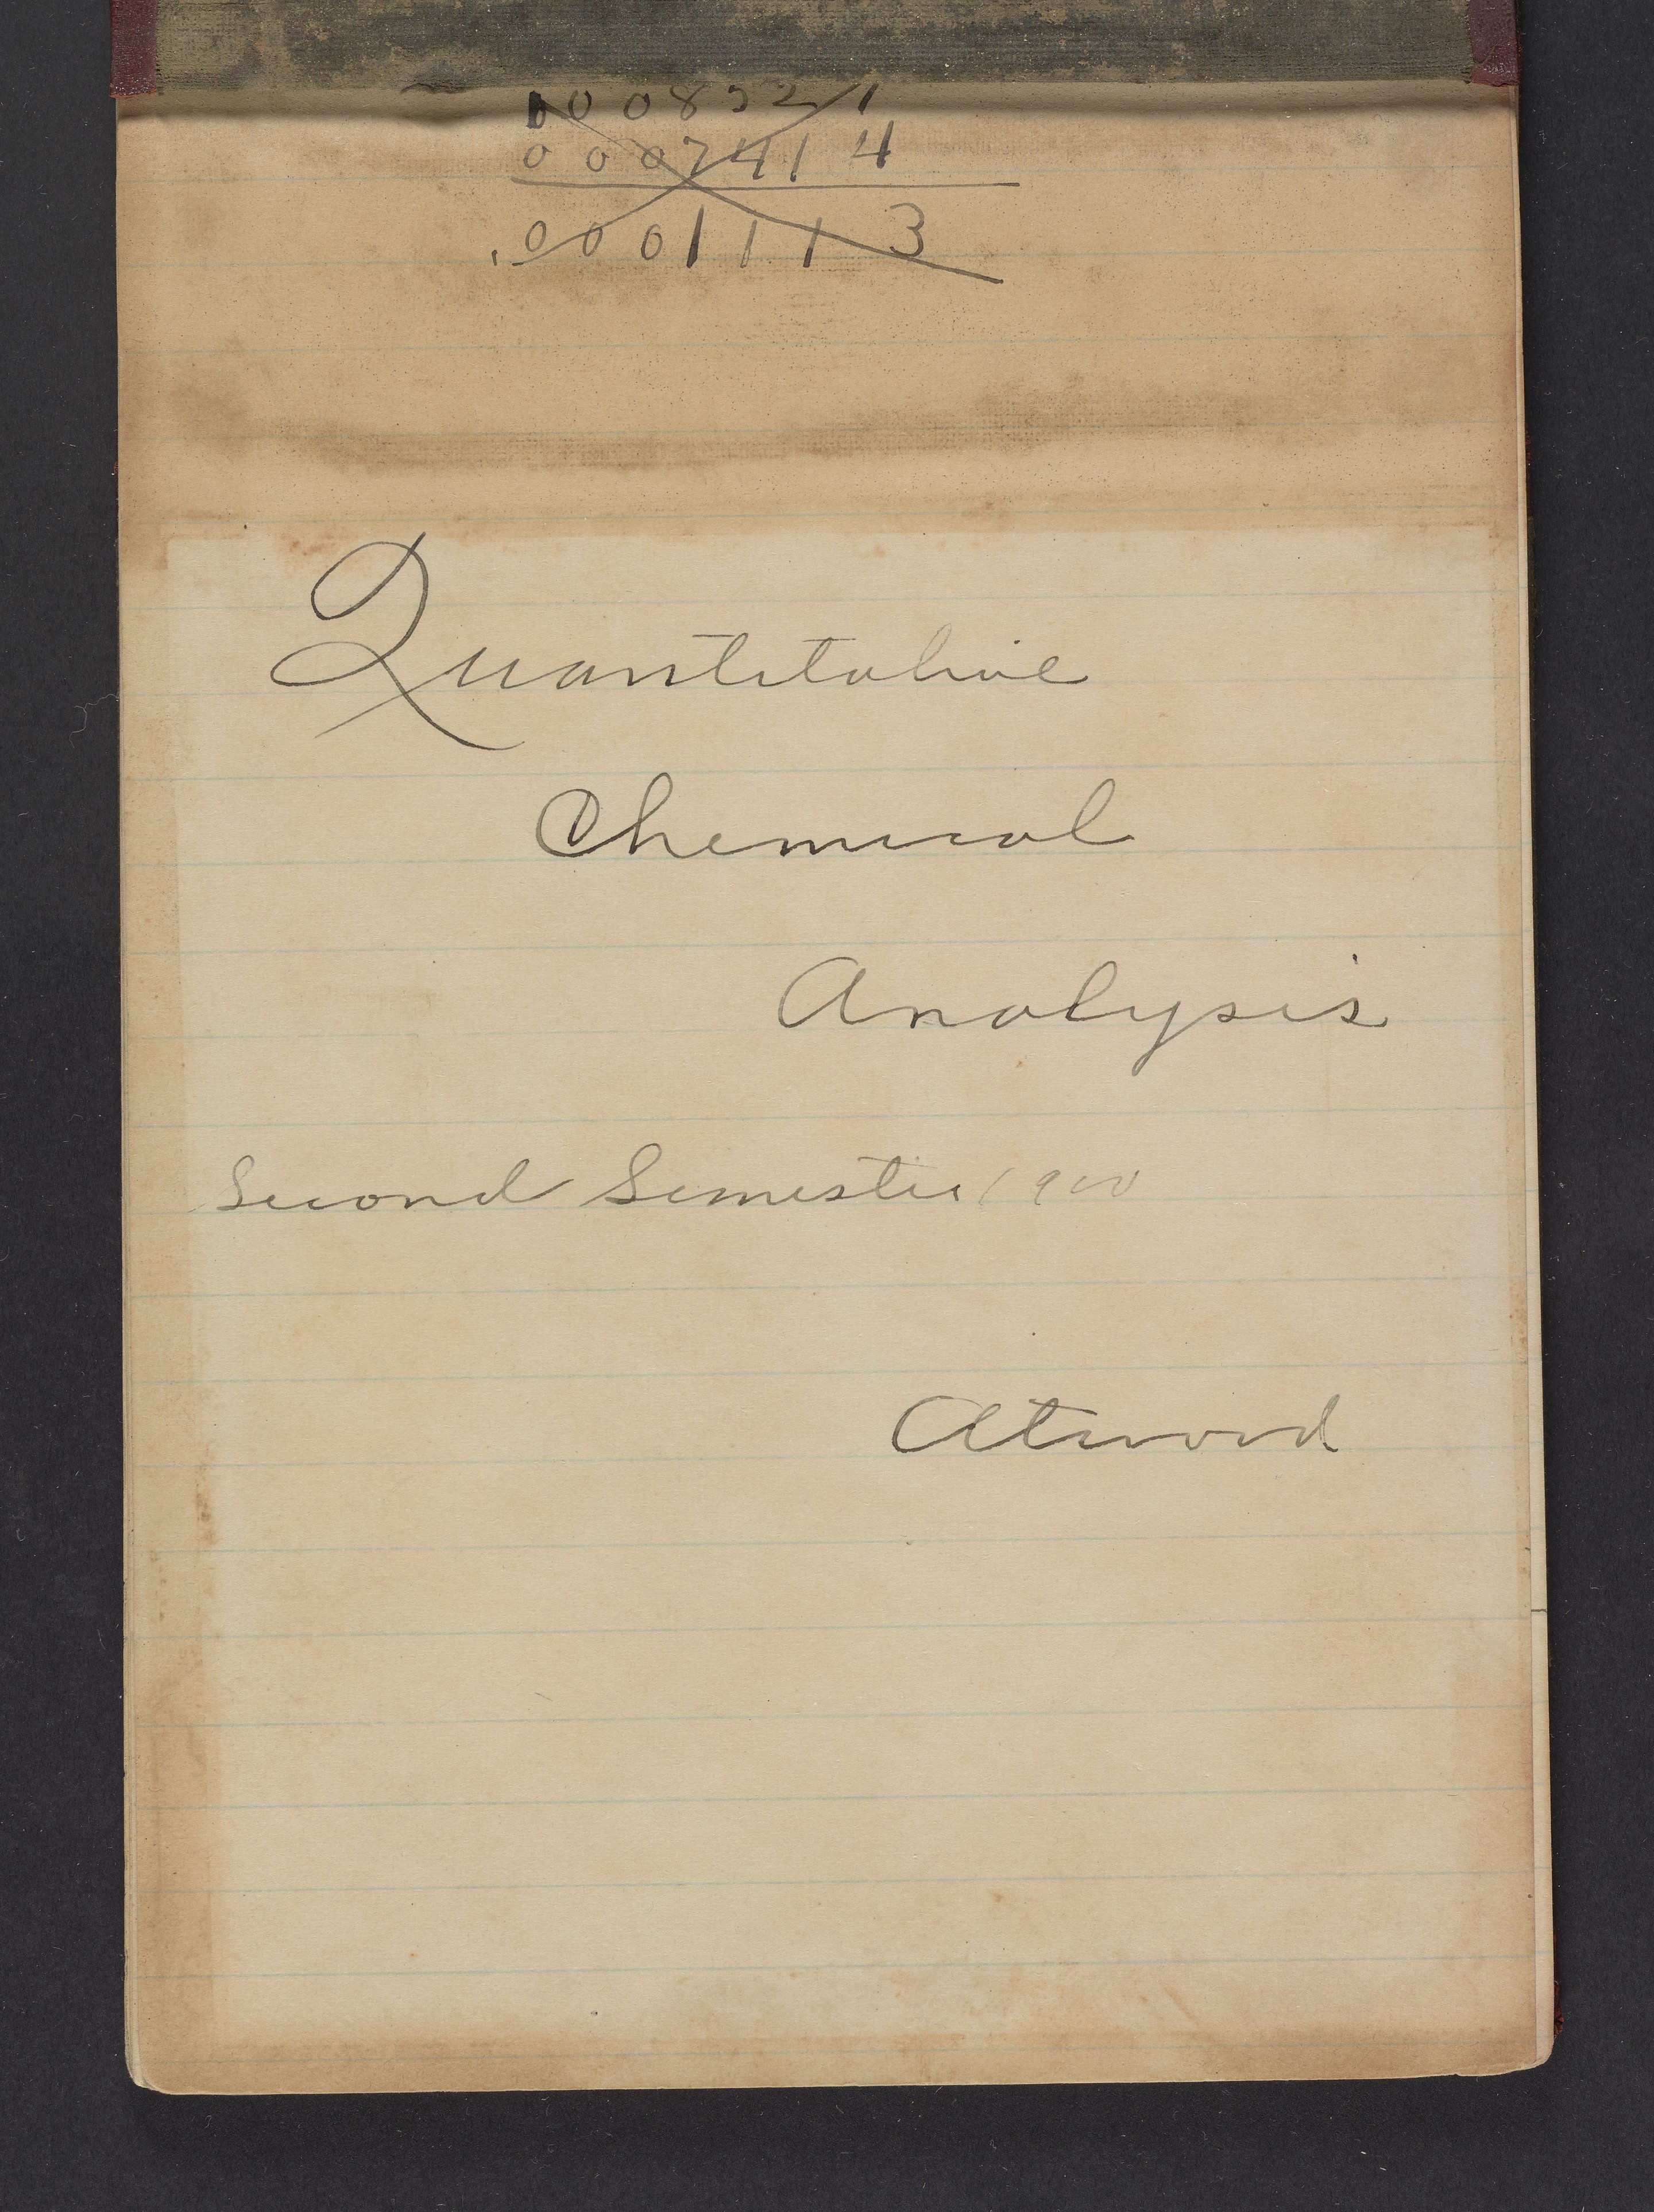 000852 1
0007414
.0001113
Quantitative
Chemical
Analysis
Second Semester 1900
Atwood